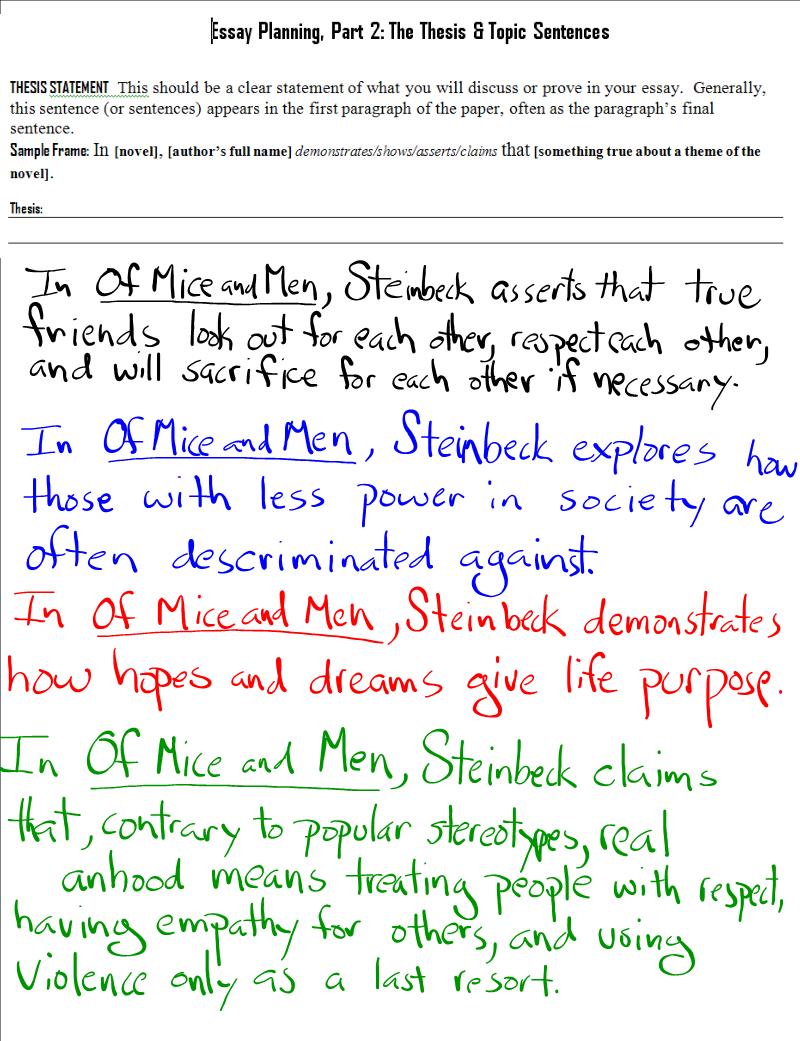 Essay Planning, Part 2: The Thesis & Topic Sentences
THESIS STATEMENT This should be a clear statement of what you will discuss or prove in your essay. Generally,
this sentence (or sentences) appears in the first paragraph of the paper, often as the paragraph's final
sentence.
Sample Frame: In [novel], [author's full name] demonstrates/shows/asserts/claims that [something true about a theme of the
novel].
Thesis:
In Of Mice and Men, Steinbeck asserts that true
friends look out for each other, respect each other,
and will sacrifice for each other if necessary.
In Of Mice and Men, Steinbeck explores how
those with less power in society are
often descriminated against.
In Of Mice and Men, Steinbeck demonstrates
how hopes and dreams give life purpose.
In Of Mice and Men, Steinbeck claims
that, contrary to popular stereotypes, real
anhood means treating people with respect,
having empathy for others, and using
violence only as a last resort.